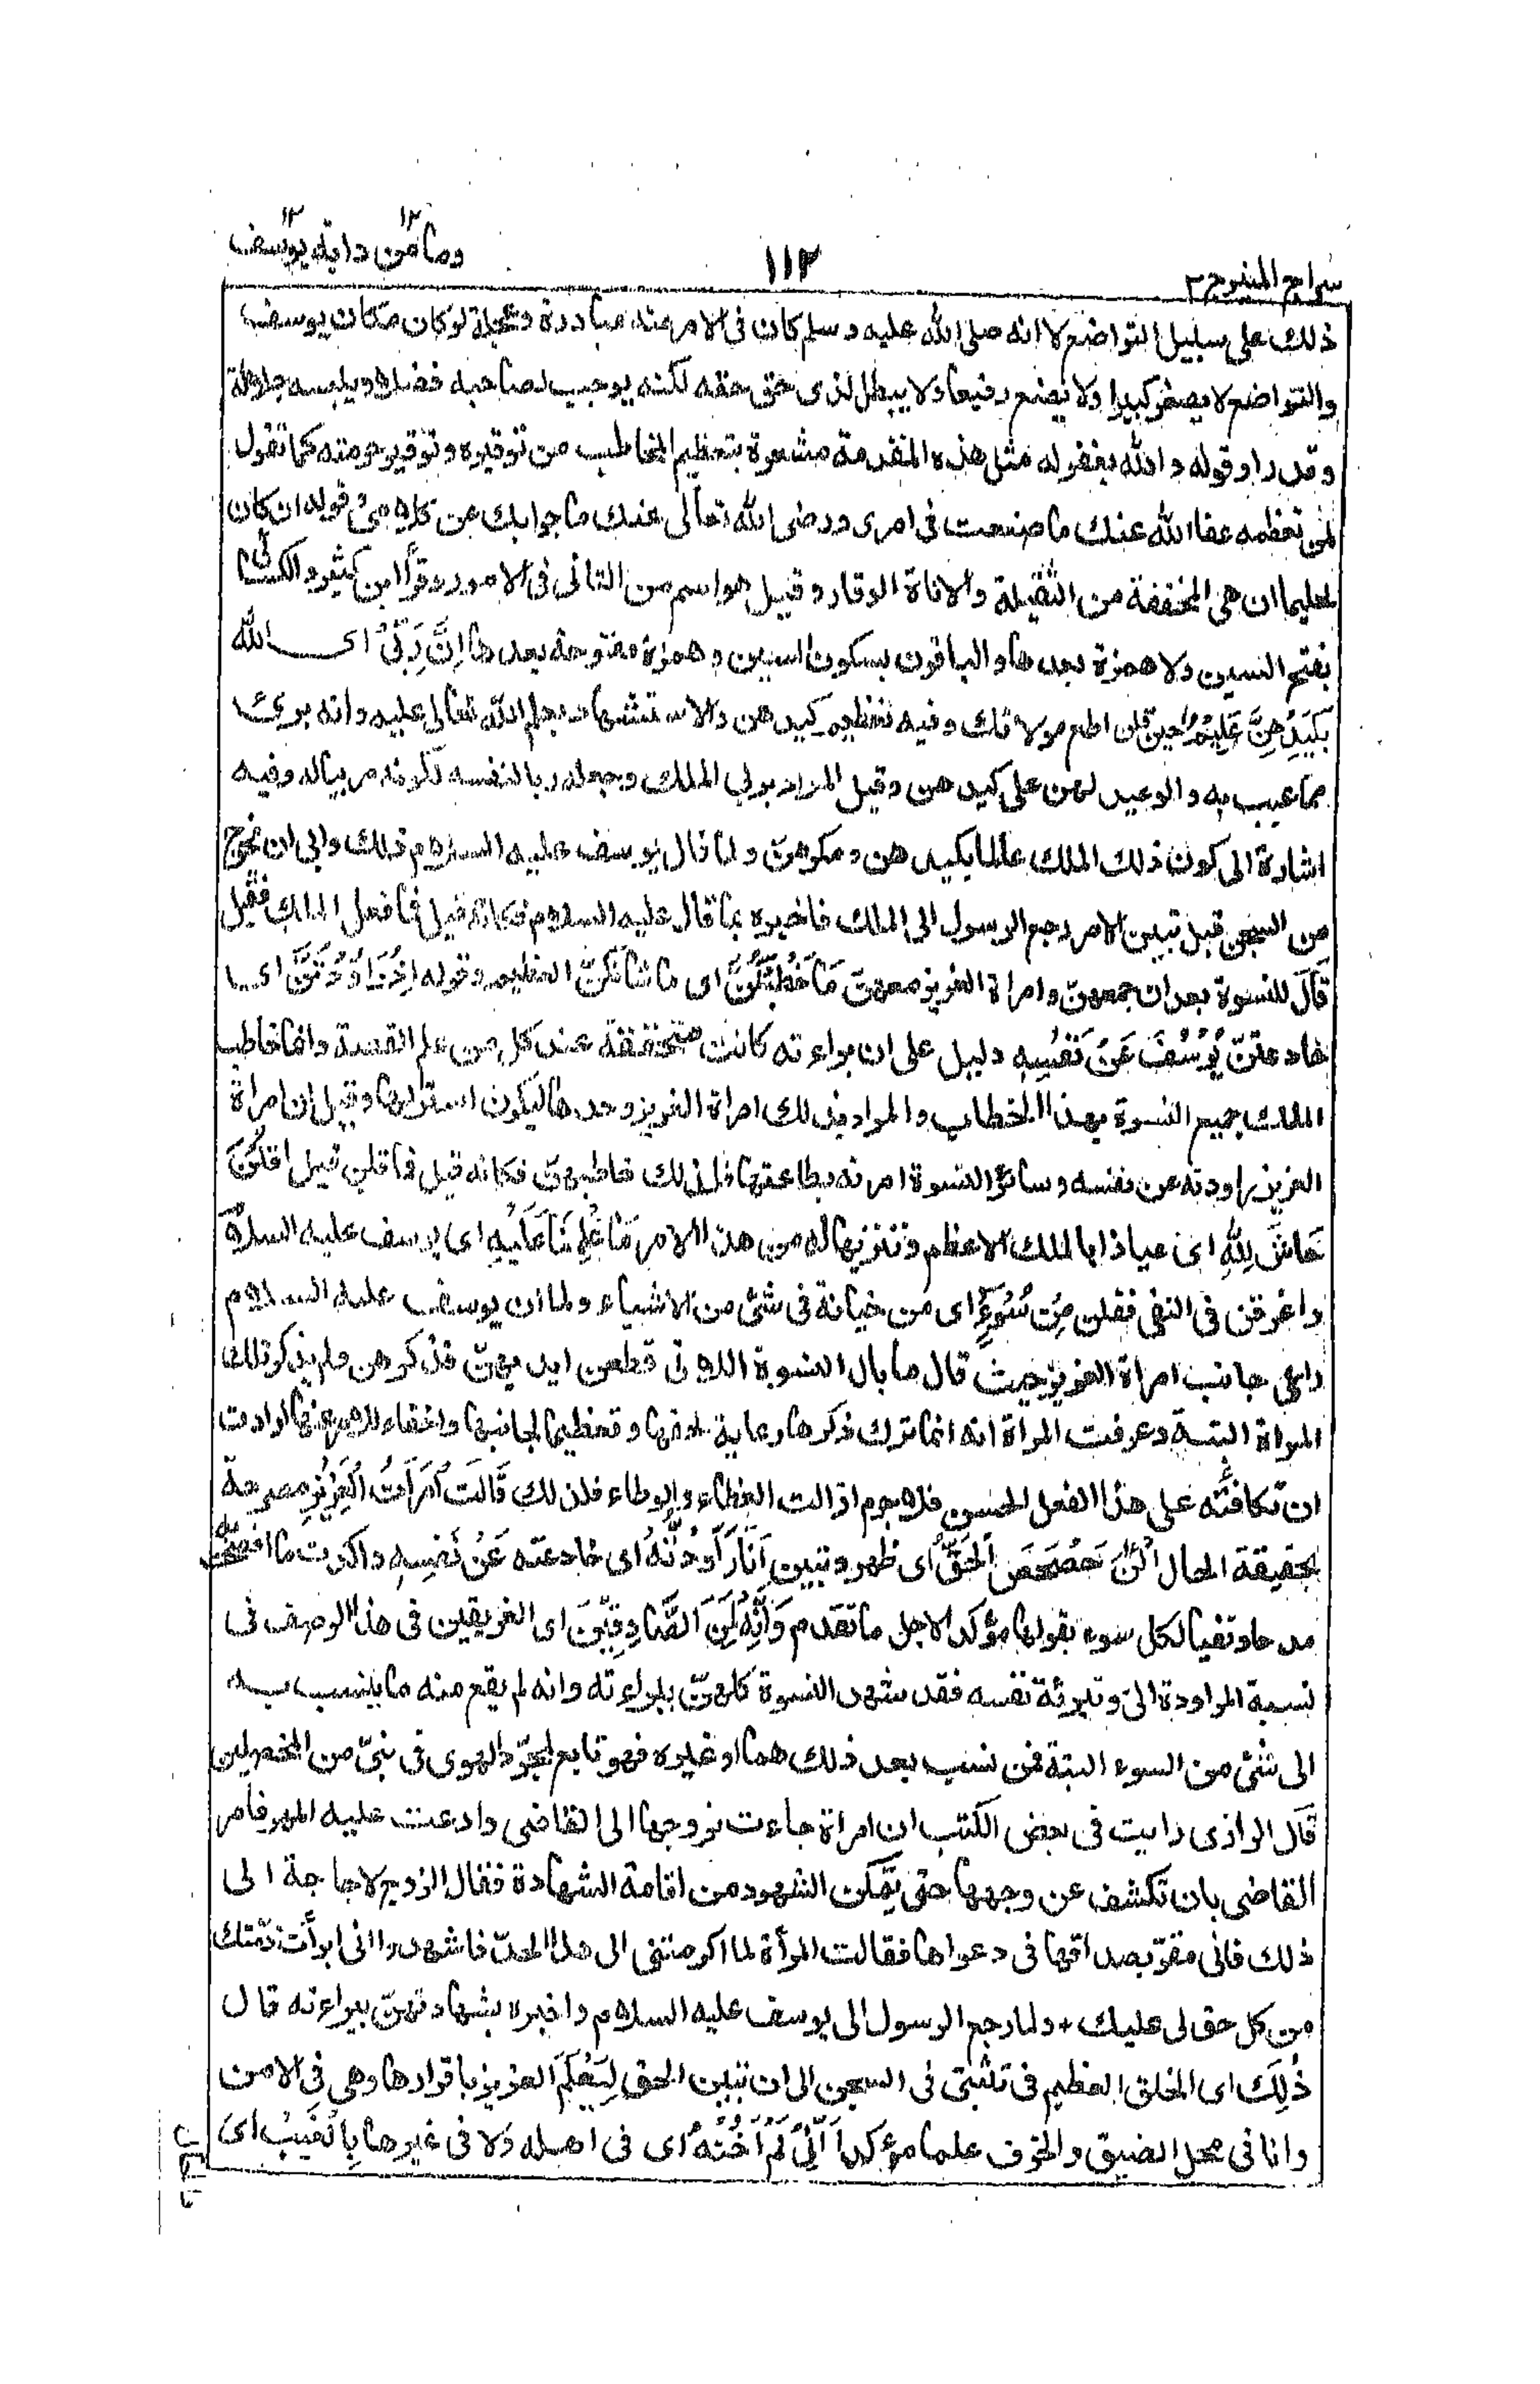 سراج المنير ج٢
١١٢
وما من دابة ١٢ يوسف ١٢
ذلك على سبيل التواضع لا انه صلى الله عليه وسلم كان فى الامر منه مبادرة وعجلة لو كان مكان يوسف
والتواضع لا يصغر كبيرا ولا يضع رفيعا ولا يبطل لذى حق حقه لكنه يوجب لصاحبه فضلا ويلبسه جلالة
وقدرا وقوله والله يغفر له مثل هذه المقدمة مشعرة بتعظيم المخاطب من توقيره وتوقير حرمته كما تقول
لمن تعظمه عفا الله عنك ما صنعت فى امرى ورضى الله تعالى عنك ما جوابك عن كلامى وقوله ان كان
لحليما ان هى المخففة من الثقيلة والاناة الوقار وقيل هو اسم من التانى فى الامور وقرأ ابن كثير والكسائى
بفتح السين ولا همزة بعدها والباقون بسكون السين وهمزة مفتوحة بعدها اِنَّ رَبِّىْ اى الله
بِكَيْدِهِنَّ عَلِيْمٌ حين قلن اطع مولاتك وفيه تعظيم كيدهن والاستشهاد بعلم الله تعالى عليه وانه برئ
مما عيب به والوعيد لهن على كيدهن وقيل المراد بربى الملك وجعله ربا لنفسه لكونه مربيا له وفيه
اشارة الى كون ذلك الملك عالما بكيدهن ومكرهن ولما قال يوسف عليه السلام ذلك وابى ان يخرج
من السجن قبل تبين الامر رجع الرسول الى الملك فاخبره بما قال عليه السلام فكانه قيل فما فعل الملك فقيل
قَالَ للنسوة بعد ان جمعهن وامراة العزيز معهن مَا خَطْبُكُنَّ اى ما شانكن العظيم وقوله اِذْ رَاوَدْتُّنَّ اى
خادعتن يُوْسُفَ عَنْ نَّفْسِهٖ دليل على ان براءته كانت متحققة عند كل من علم القصة وانما خاطب
الملك جميع النسوة بهذا الخطاب والمراد بذلك امراة العزيز وحدها ليكون استر لها وقيل ان امراة
العزيز راودته عن نفسه وسائر النسوة امرنه بطاعتها فلذلك خاطبهن فكانه قيل فما قلن قيل قُلْنَ
حَاشَ لِلّٰهِ اى عياذا بالملك الاعظم وتنزيها له من هذا الامر مَا عَلِمْنَا عَلَيْهِ اى يوسف عليه السلام
واغرقن فى النفى فقلن مِنْ سُوْٓءٍ اى من خيانة فى شئ من الاشياء ولما ان يوسف عليه السلام
راعى جانب امراة العزيز حيث قال ما بال النسوة اللاتى قطعن ايديهن فذكرهن ولم يذكر تلك
المراة البتة وعرفت المراة انه انما ترك ذكرها رعاية لحقها وتعظيما لجانبها واخفاء للامر عنها ارادت
ان تكافئه على هذا الفعل الحسن فلا جرم ازالت الغطاء والوطاء فلذلك قَالَتِ امْرَاَتُ الْعَزِيْزِ مصرحة
بحقيقة الحال الْـٰٔنَ حَصْحَصَ الْحَقُّ اى ظهر وتبين اَنَا رَاوَدْتُّهٗ اى خادعته عَنْ نَّفْسِهٖ واكدت ما افصحت به
مدحا ونفيا لكل سوء بقولها مؤكدا لاجل ما تقدم وَاِنَّهٗ لَمِنَ الصَّادِقِيْنَ اى الغريقين فى هذا الوصف فى
نسبة المراودة الى وتبرئة نفسه فقد شهد النسوة كلهن ببراءته وانه لم يقع منه ما ينسب به
الى شئ من السوء البتة فمن نسب بعد ذلك هما او غيره فهو تابع لمجرد الهوى فى نبى من المخلصين
قال الرازى رايت فى بعض الكتب ان امراة جاءت زوجها الى القاضى وادعت عليه المهر فامر
القاضى بان تكشف عن وجهها حتى يتمكن الشهود من اقامة الشهادة فقال الزوج لا حاجة الى
ذلك فانى مقر بصداقها فى دعواها فقالت المرأة لما اكرمتنى الى هذا الحد فاشهدوا انى ابرأت ذمتك
من كل حق لى عليك + ولما رجع الرسول الى يوسف عليه السلام واخبره بشهادتهن ببراءته قال
ذٰلِكَ اى الخلق العظيم فى تثبتى فى السجن الى ان تبين الحق لِيَعْلَمَ العزيز باقرارها وهى فى الامن
وانا فى محل الضيق والخوف علما مؤكدا اَنِّىْ لَمْ اَخُنْهُ اى فى اهله ولا فى غيرها بِالْغَيْبِ اى